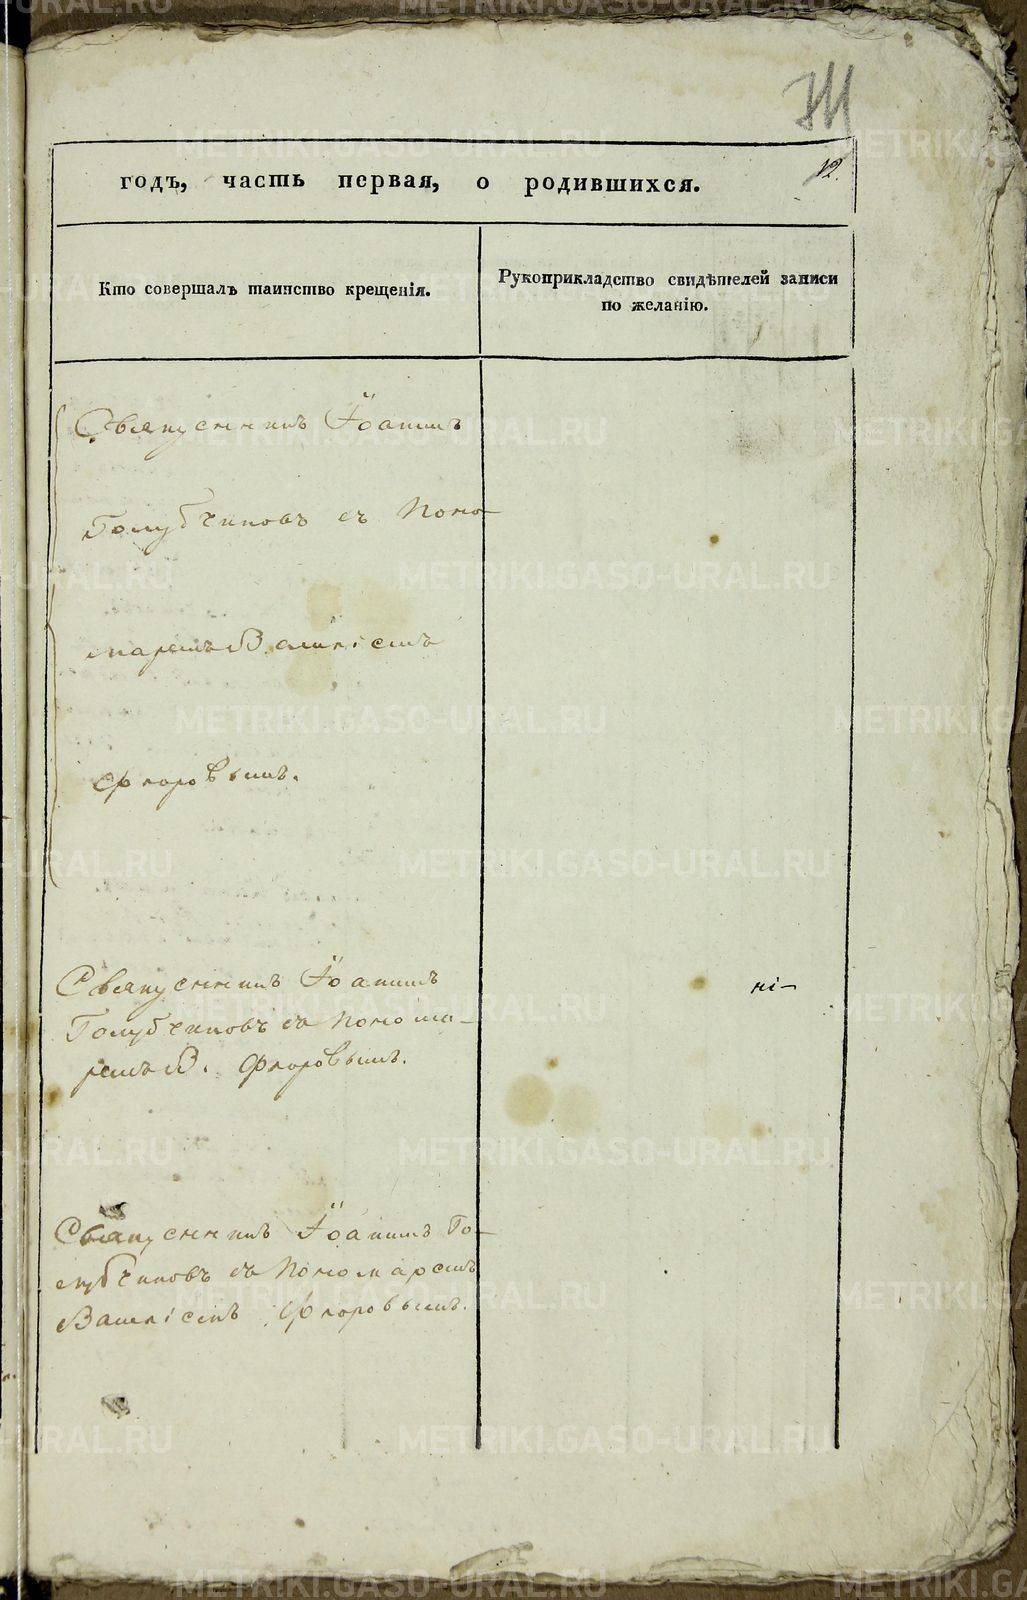 12.
годъ, часть первая, о родившихся.
Кто совершалъ таинство крещенія.
Рукоприкладство свидѣтелей записи
по желанію.
Священникъ Іоаннъ
Голубчиковъ съ Поно-
маремъ В
Флоровымъ.
Священникъ Іоаннъ
Голубчиковъ съ понома-
ремъ В. Флоровымъ.
ні-
Священникъ Іоаннъ Го-
лубчиковъ съ Пономаремъ
Флоровымъ.
METRIKI.GASO-URAL.RU